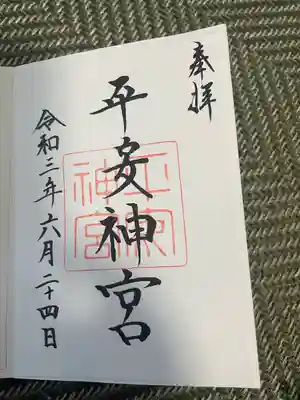 奉拝
平安神宮
令和三年六月二十四日